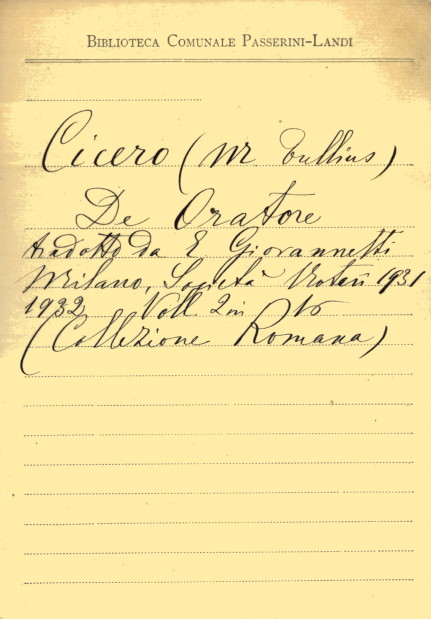 BIBLIOTECA COMUNALE PASSERINI-LANDI
Cicero (M Tullius)
De Oratore
tradotto da E Giovannetti
Milano, Società Notari 1931
1932 Voll. 2 in 16
(Collezione Romana)